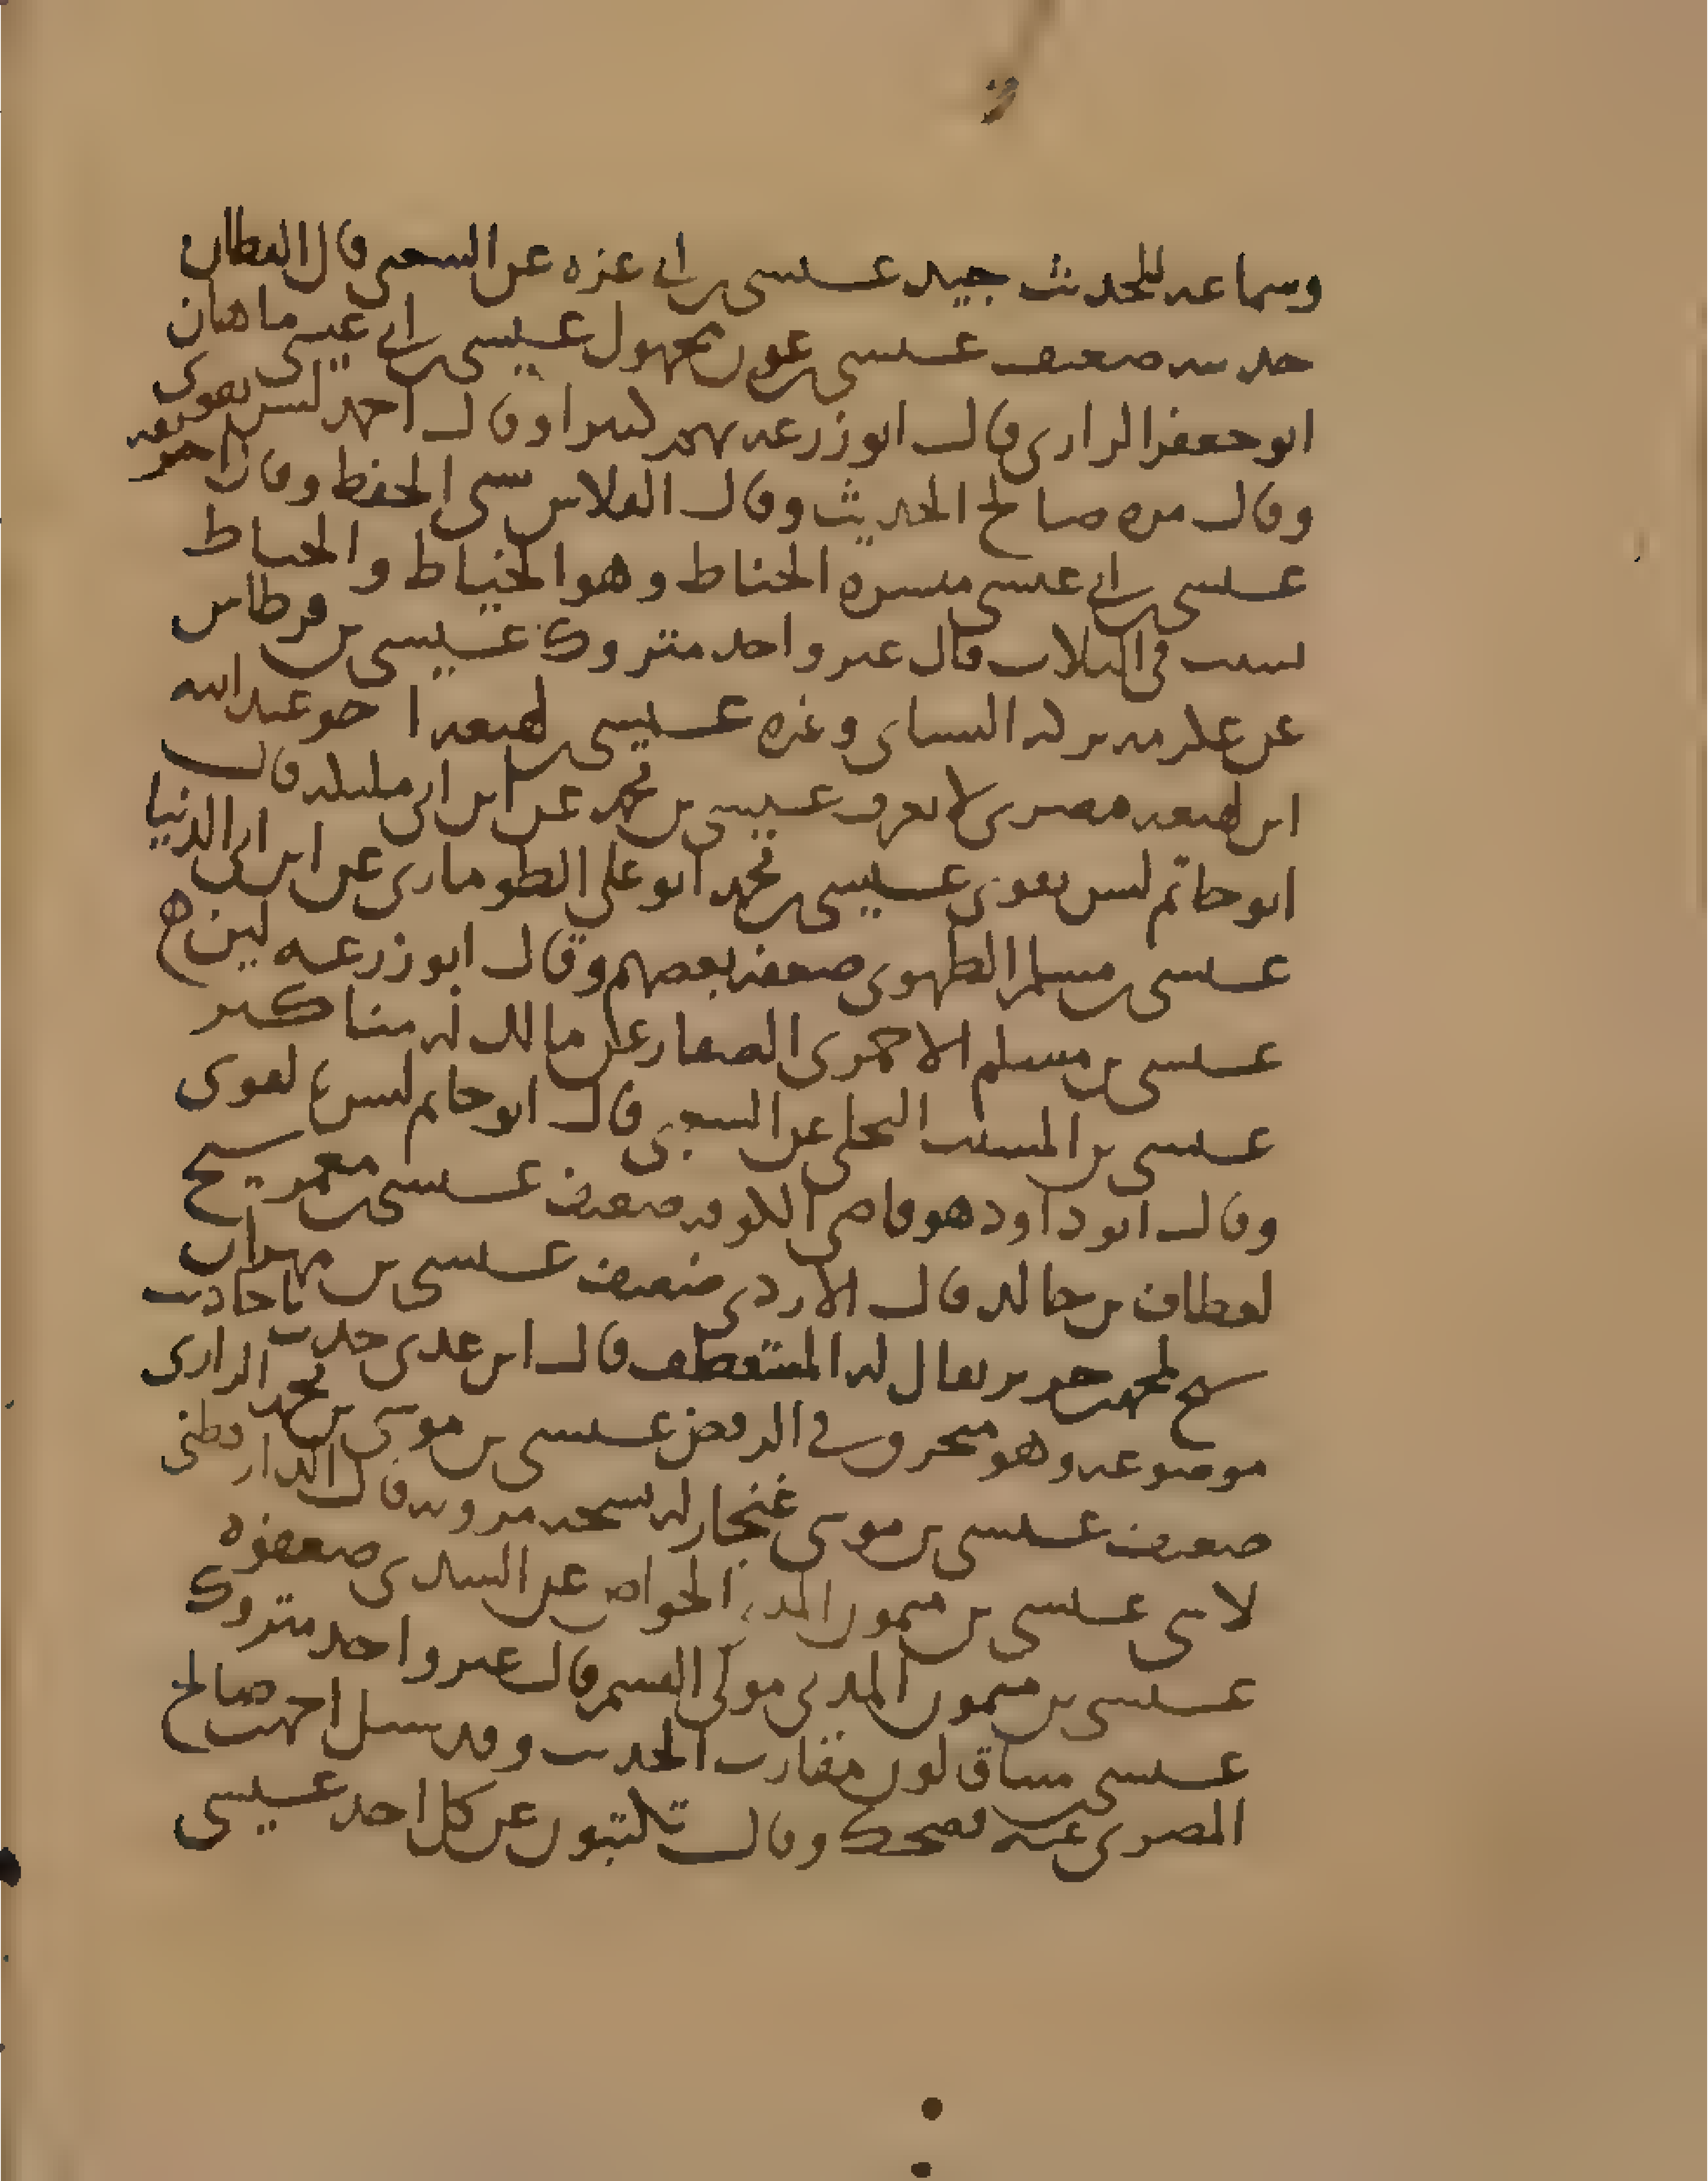 وسماعه للحديث جيد عيسى بن ابي عزه عن الشعبي قال القطان
حديثه ضعيف عيسى بن عون مجهول عيسى بن ابي عيسى ماهان
ابو جعفر الرازي قال ابو زرعه يهم كثيرا وقال احمد ليس بقوي
وقال مره صالح الحديث وقال الفلاس سيئ الحفظ وقال اخر ثقه
عيسى بن ابي عيسى ميسره الحناط وهو الخياط والخباط
نسب في الثلاث قال غير واحد متروك عيسى بن قرطاس
عن عكرمه تركه النسائي وغيره عيسى بن لهيعه اخو عبد الله
ابن لهيعه مصري لا يعرف عيسى بن محمد عن ابن ابي مليكه قال
ابو حاتم ليس بقوي عيسى بن محمد ابو علي الطوماري عن ابن ابي الدنيا
عيسى بن مسلم الطهوي ضعفه بعضهم وقال ابو زرعه لين
عيسى بن مسلم الاحمري الصفار عن مالك له مناكير
عيسى بن المسيب البجلي عن الشعبي قال ابو حاتم ليس بقوي
وقال ابو داود هو قاضي الكوفه ضعيف عيسى بن معمر شيخ
لعطاف بن خالد قال الازدي ضعيف عيسى بن مهران
شيخ لمحمد بن جرير يقال له المستعطف قال ابن عدي حدث باحاديث
موضوعه وهو محروق في الرفض عيسى بن موسى بن محمد الرازي
ضعيف عيسى بن موسى غنجار له نسخه مرويه قال الدارقطني
لا شي عيسى بن ميمون الخواص عن السدي ضعفوه
عيسى بن ميمون المدني مولى القسم قال غير واحد متروك
عيسى بن مينا قالون مقارب الحديث وقد سئل احمد بن صالح
المصري عنه فضحك وقال تكتبون عن كل احد عيسى